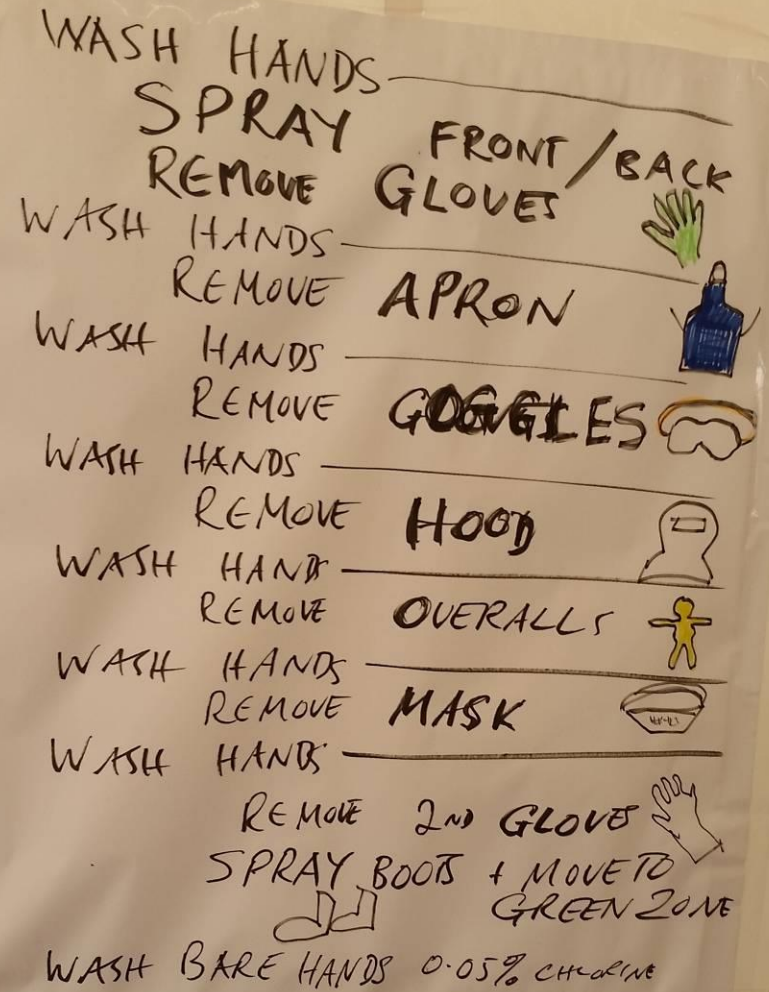 WASH HANDS
SPRAY FRONT/BACK
REMOVE GLOVES
WASH HANDS
REMOVE APRON
WASH HANDS
REMOVE GOGGLES
WASH HANDS
REMOVE HOOD
WASH HANDS
REMOVE OVERALLS
WASH HANDS
REMOVE MASK
WASH HANDS
REMOVE 2ND GLOVES
SPRAY BOOTS + MOVE TO
GREEN ZONE
WASH BARE HANDS 0.05% CHLORINE